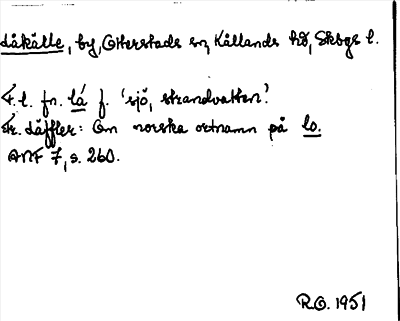 Låkälle, by, Otterstads sn, Kållands hd, Skbgs l.
F.l. fn. lá f. 'sjö, strandvatten'.
Fr. Läffler: Om norska ortnamn på lo.
ANF 7, s. 260.
R.O. 1951